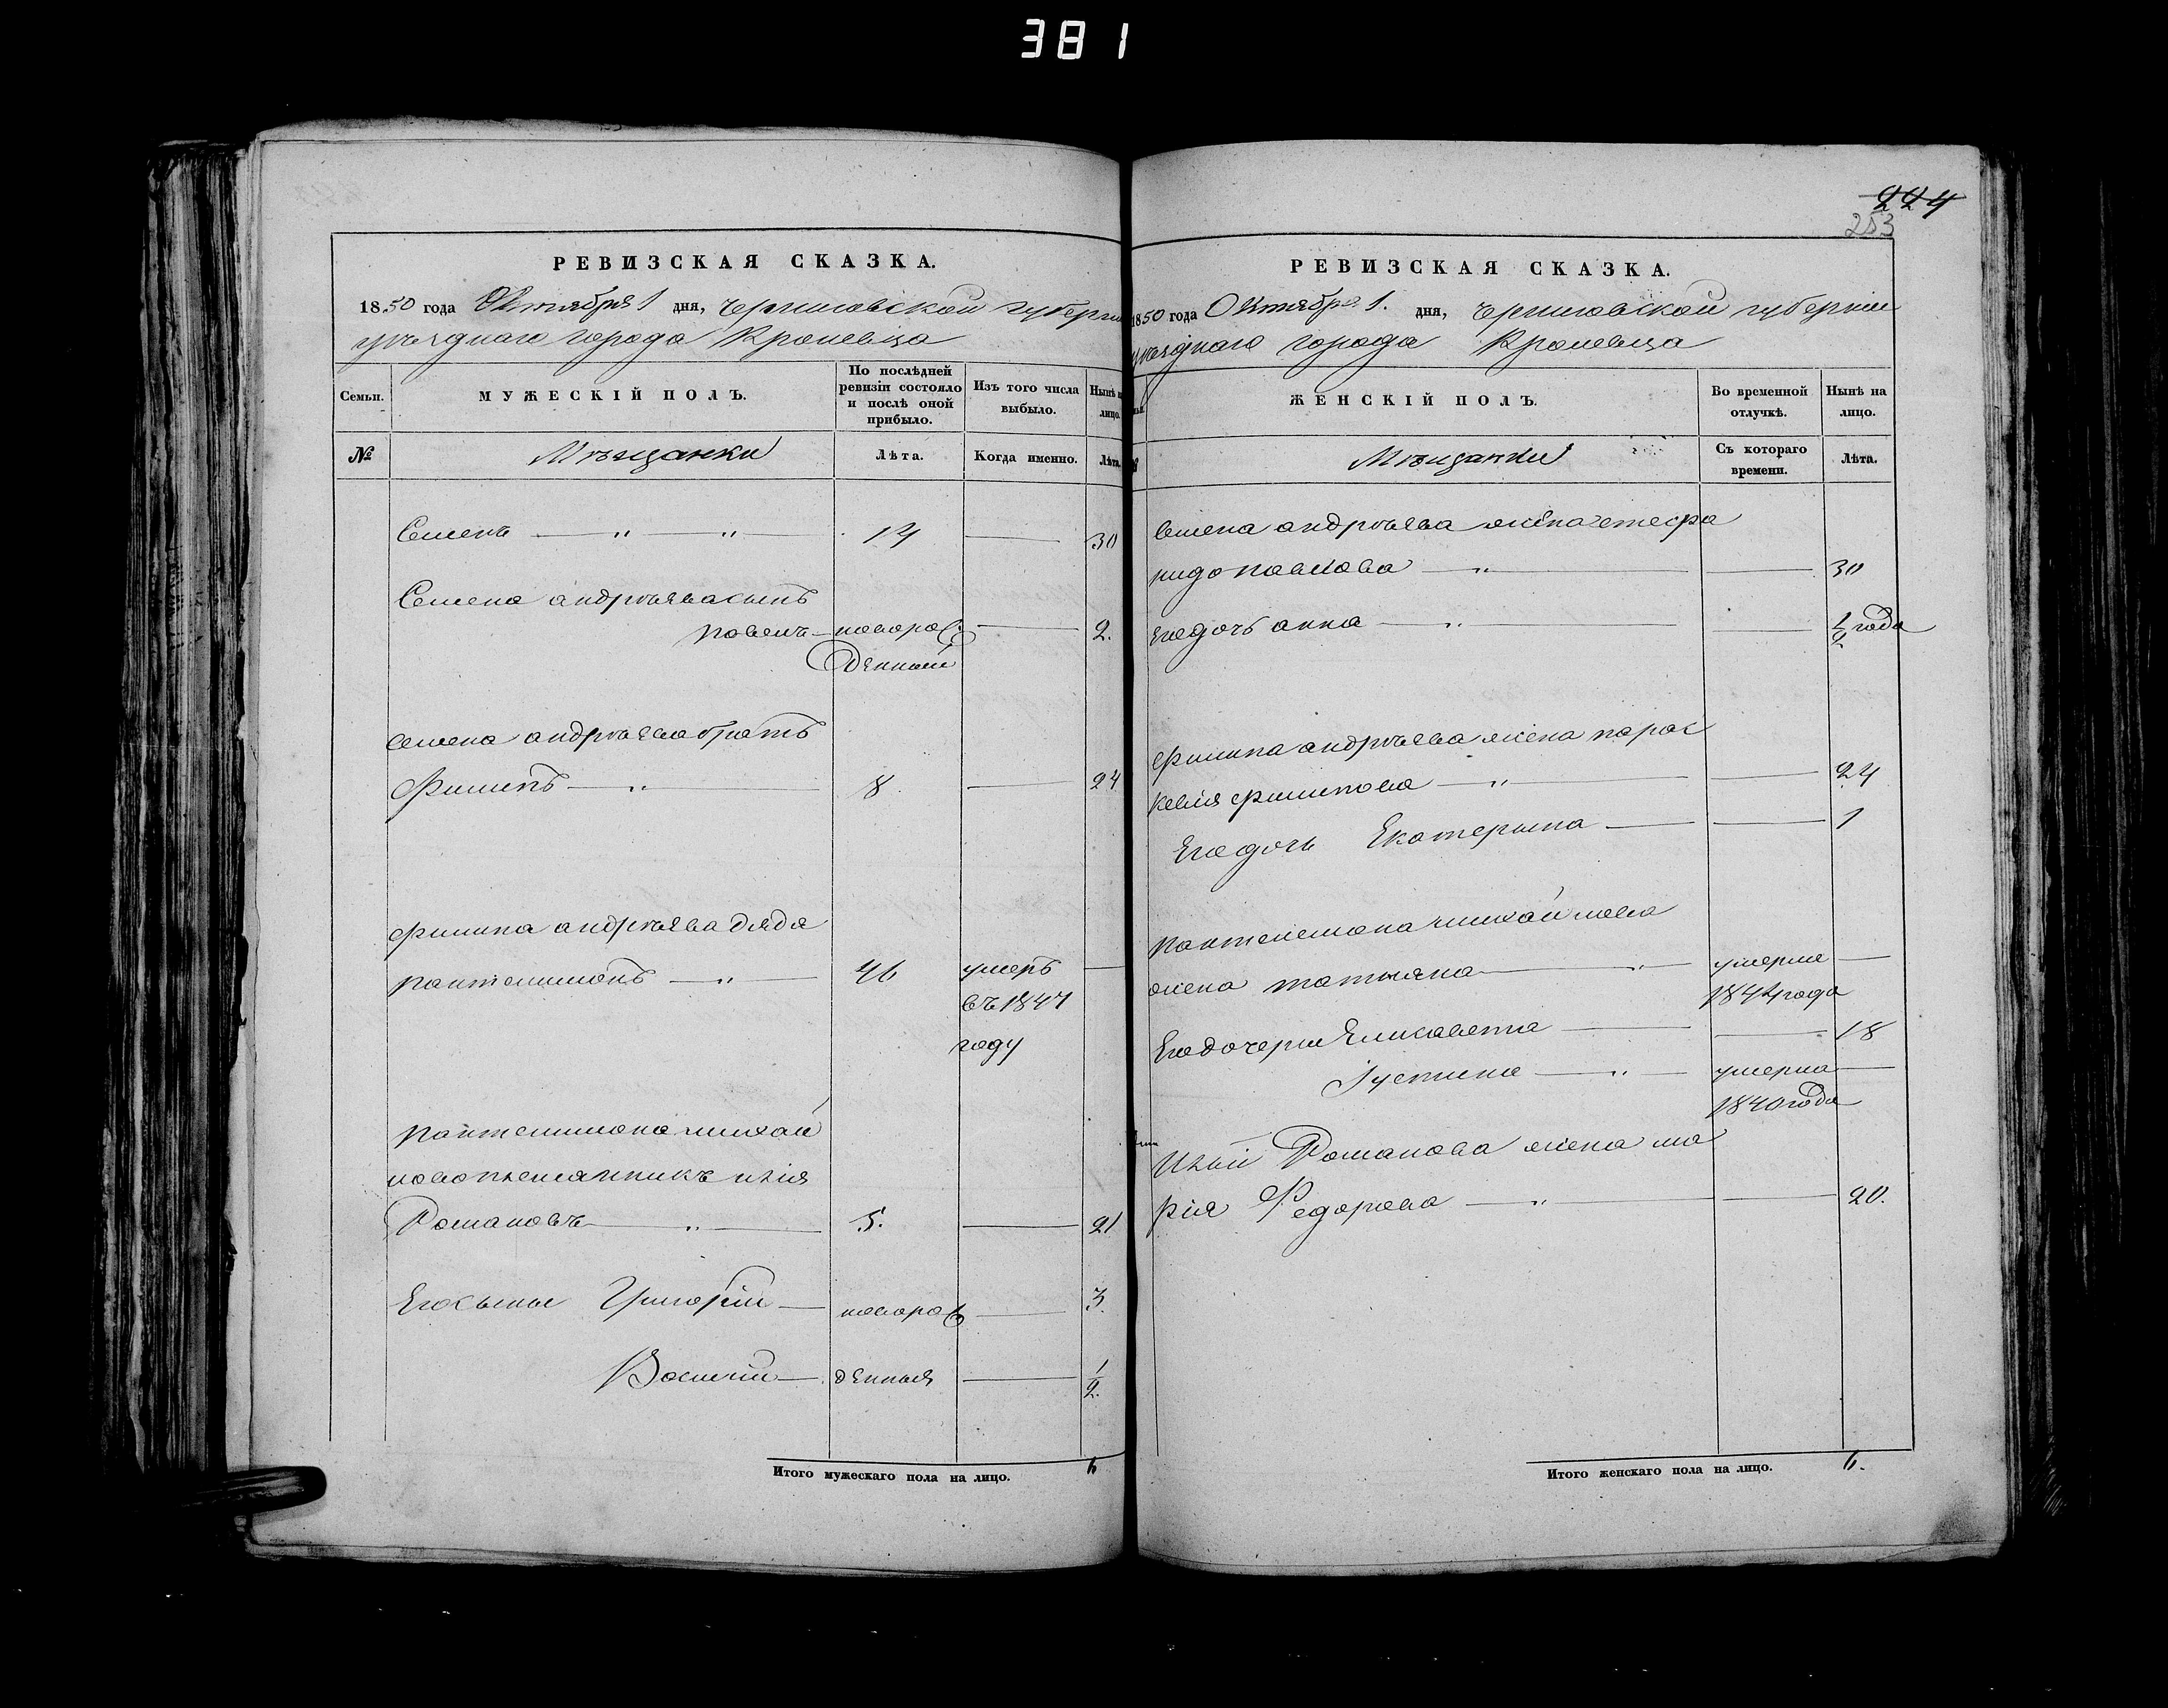 381
РЕВИЗСКАЯ СКАЗКА.
1850 года Октября 1 дня, Черниговской губерни
уѣзднаго города Кролевца
Семьи.
МУЖЕСКІЙ ПОЛЪ.
По послѣдней ревизіи состояло и послѣ оной прибыло.
Изъ того числа выбыло.
Нынѣ на лицо.
№
Мѣщанки
Лѣта.
Когда именно.
Лѣта.
Семенъ — " — " — 14 — 30
Семена андрѣева сынъ
павелъ — новорож — 2.
денный
Семена андрѣева братъ
Филипъ — " — 8 — 24
филипа андрѣева дядя
пантелимонъ — " — 46 умеръ —
въ 1847
году
пантелимона михай
лова племянникъ илія
Романовъ — " — 5. — 21
Его сыны Григорій — новорож — 3.
Василій — денныя — 1/2.
Итого мужескаго пола на лицо. 6
224
253
РЕВИЗСКАЯ СКАЗКА.
1850 года Октября 1. дня, Черниговской губерніи
уѣзднаго города Кролевца
ЖЕНСКІЙ ПОЛЪ.
Во временной отлучкѣ.
Нынѣ на лицо.
Мѣщанки
Съ котораго времени.
Лѣта.
Семена андрѣева жена степа
нида павлова — " — — 30
его дочь анна — " — — 1/2 года
филипа андрѣева жена парас
кевія филипова — " — — 24
Его дочь Екатерына — — 1
пантелемона михайлова
жена татіяна — " — умерла —
184 года
Его дочери Елисавета — — 18
Іустина — " — умерла —
1840 года
Иліи Романова жена ма
рія Федорова — " — — 20.
Итого женскаго пола на лицо. 6.